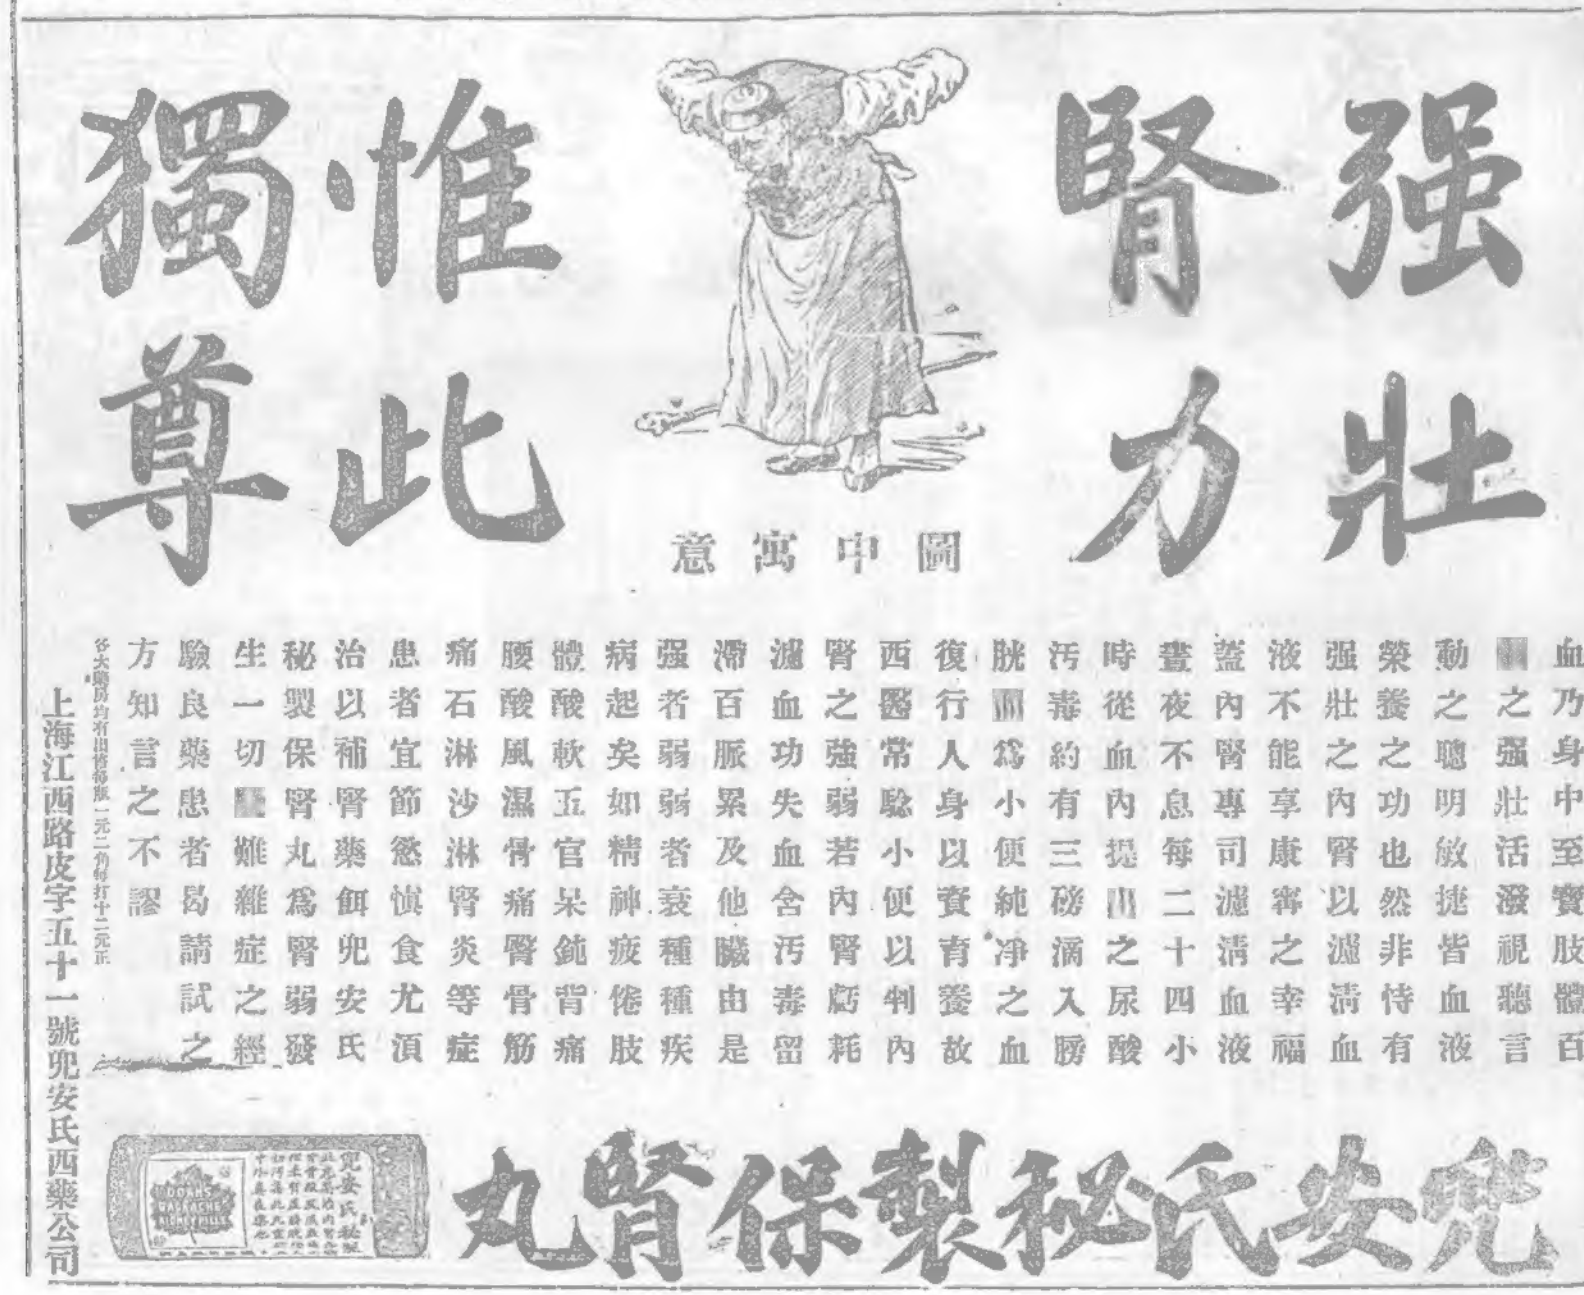 强壯
腎力
惟此
獨尊
圖中寓意
血乃身中至寶肢體百
之强壯活潑視聽言
動之聰明敏捷皆血液
榮養之功也然非恃有
强壯之內腎以濾清血
液不能享康寧之幸福
蓋內腎專司濾清血液
晝夜不息每二十四小
時從血內提出之尿酸
汚毒約有三磅滴入膀
胱爲小便純凈之血
復行人身以資育養故
西醫常驗小便以判內
腎之強弱若內腎虧耗
濾血功失血含汚毒留
滯百脈累及他臟由是
强者弱弱者衰種種疾
病起矣如精神疲倦肢
體酸軟五官呆鈍背痛
腰酸風濕骨痛臀骨筋
痛石淋沙淋腎炎等症
患者宜節慾慎食尤須
治以補腎藥餌兜安氏
秘製保腎丸爲腎弱發
生一切難雜症之經
驗良藥患者曷請試之
方知言之不謬
各大藥房均有出售每瓶一元二角每打十二元正
上海江西路皮字五十一號兜安氏西藥公司
兜安氏秘製保腎丸
DOAN'S
BACKACHE
KIDNEY PILLS